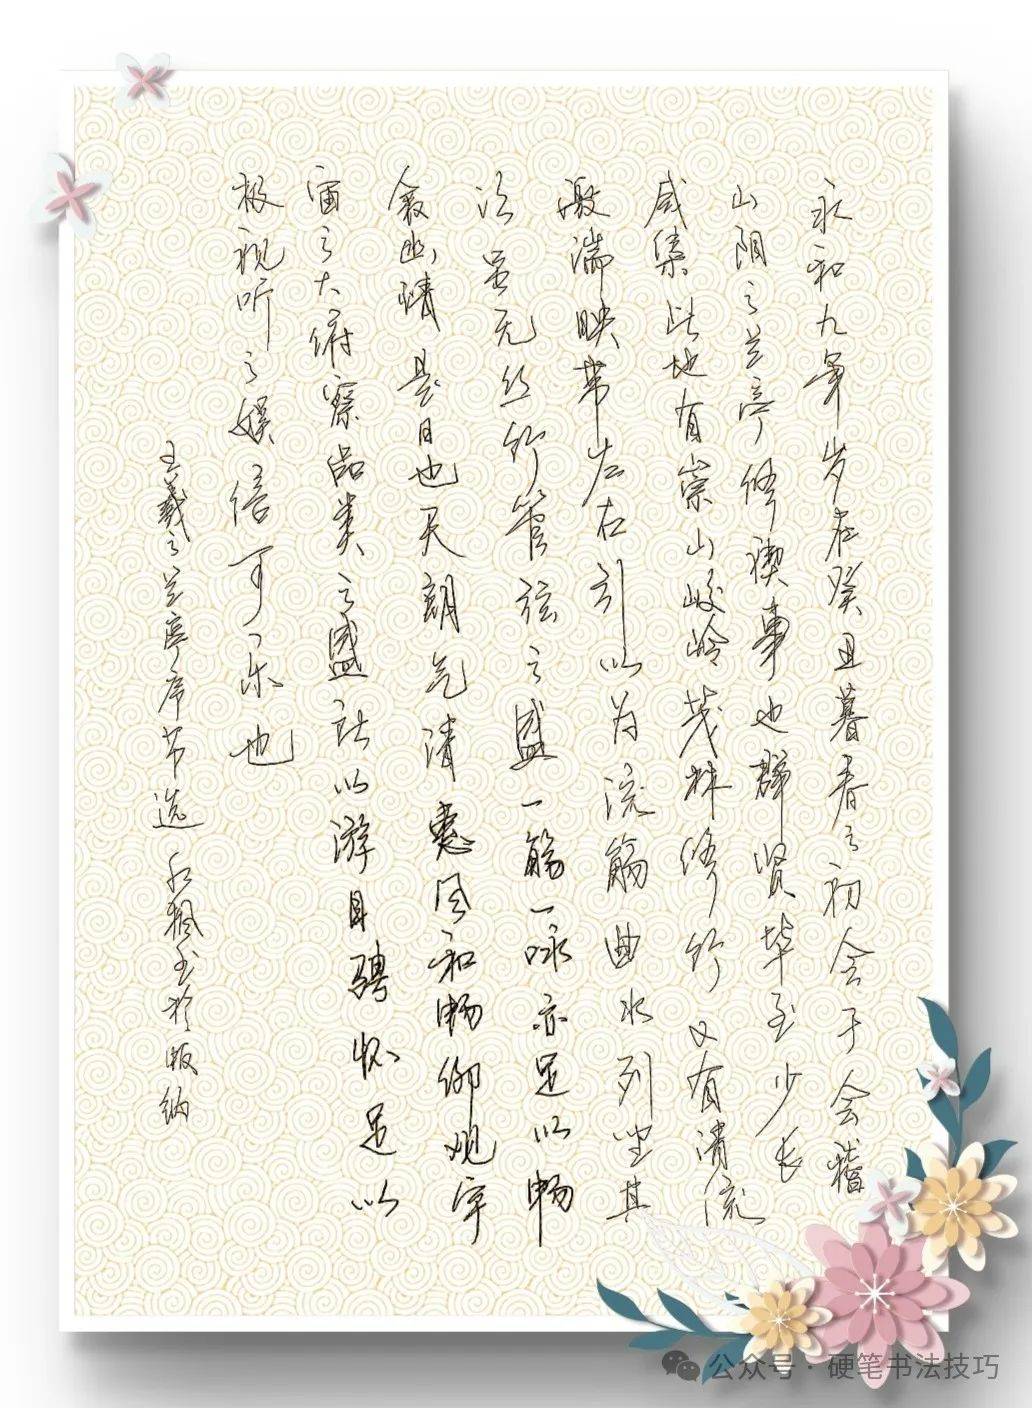 永和九年岁在癸丑暮春之初会于会稽
山阴之兰亭修禊事也群贤毕至少长
咸集此地有崇山峻岭茂林修竹又有清流
激湍映带左右引以为流觞曲水列坐其
次虽无丝竹管弦之盛一觞一咏亦足以畅
叙幽情是日也天朗气清惠风和畅仰观宇
宙之大俯察品类之盛所以游目骋怀足以
极视听之娱信可乐也
王羲之兰亭序节选 红枫书於版纳
公众号·硬笔书法技巧